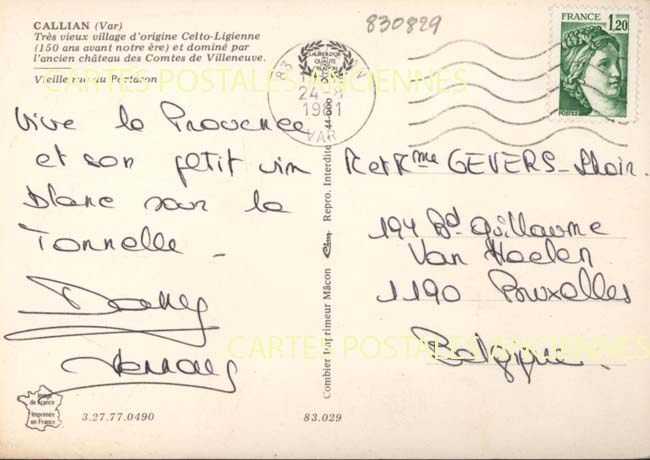 CALLIAN (Var)
Très vieux village d'origine Celto-Ligienne
(150 ans avant notre ère) et dominé par
l'ancien château des Comtes de Villeneuve.
Vieille rue du Portaron
830829
FRANCE
1,20
POSTES
83
24-
1981
VAR
CARTES POSTALES ANCIENNES
Vive la Provence
et son petit vin
blanc sous la
Tonnelle -
Mr et Mme GEVERS-
194 Bd Guillaume
Van Haelen
1190 Bruxelles
Belgique.
CARTES POSTALES ANCIENNES
Combier Imprimeur Mâcon
Repro. Interdite
Image
de France
Imprimée
en France
3.27.77.0490
83.029